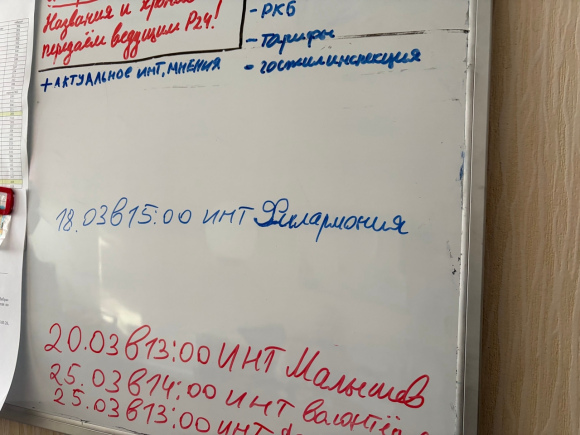 Названия и хрон
передаём ведущим Р24!
+ АКТУАЛЬНОЕ ИНТ, МНЕНИЯ
- РКБ
- тарифы
- госжилинспекция
18.03 в 15:00 ИНТ Филармония
20.03 в 13:00 ИНТ Малышев
25.03 в 14:00 ИНТ
25.03 в 13:00 ИНТ